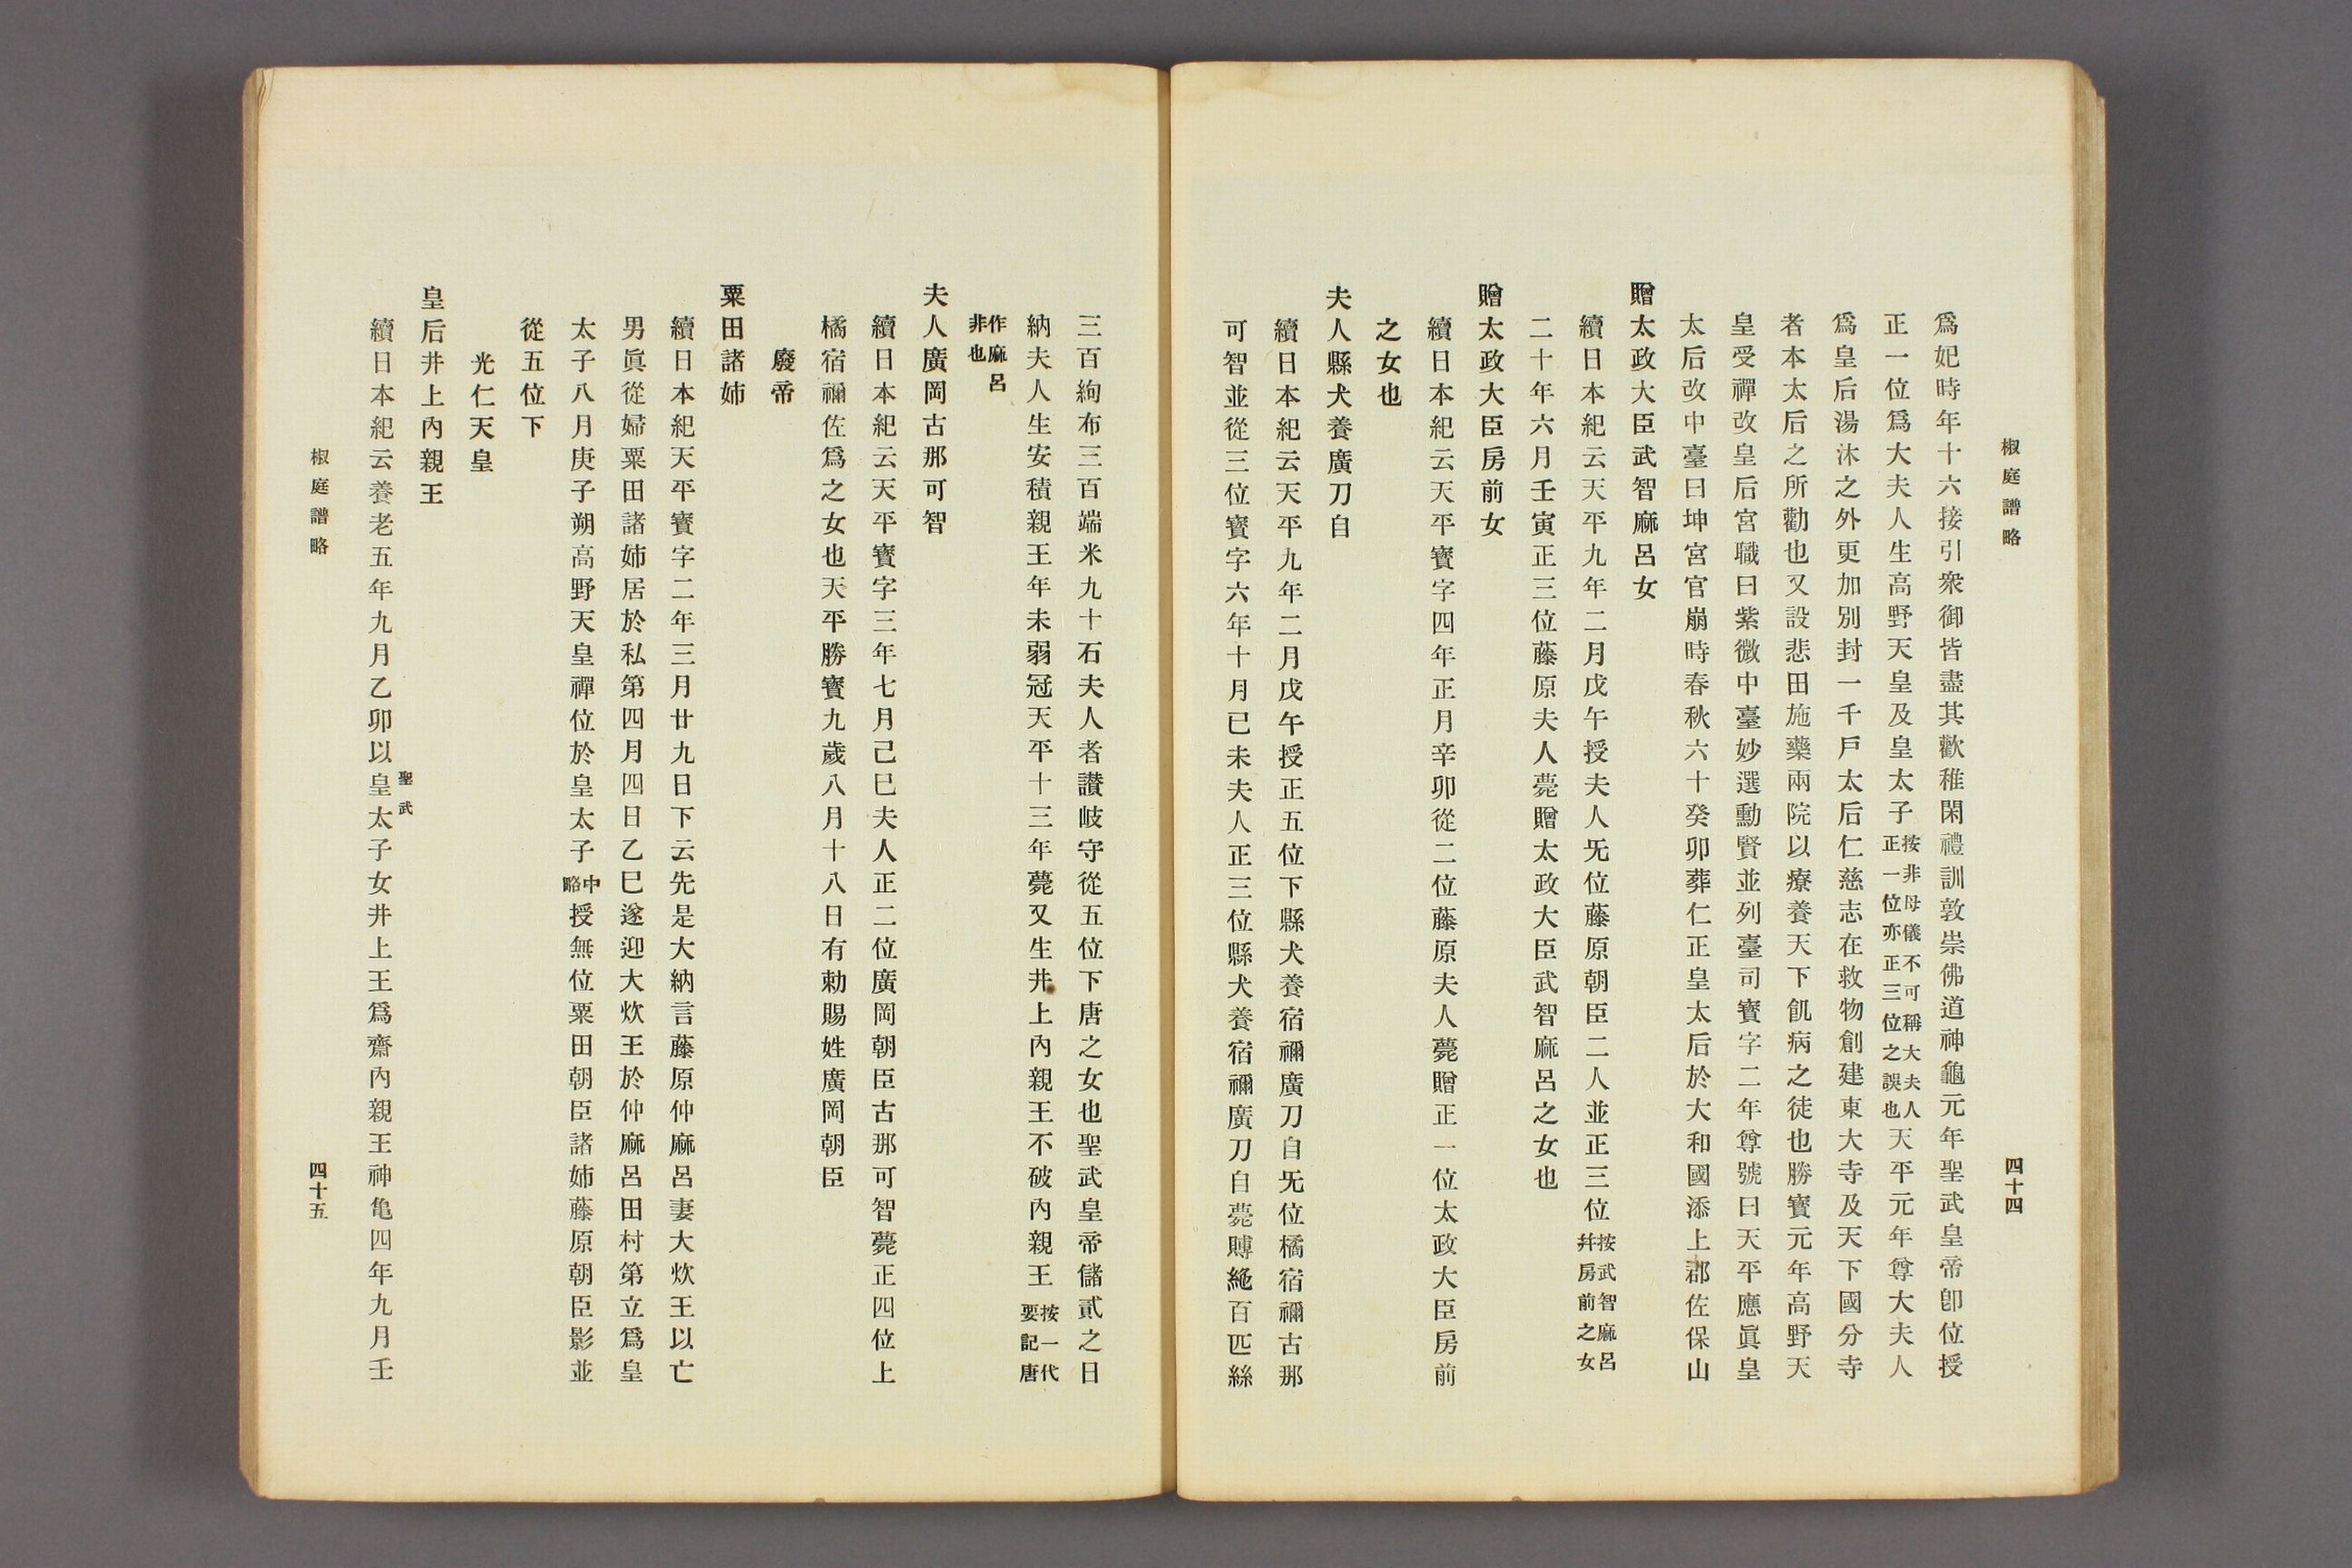 椒庭譜略
四十四
爲妃時年十六接引衆御皆盡其歡稚閑禮訓敦崇佛道神龜元年聖武皇帝卽位授
正一位爲大夫人生高野天皇及皇太子按非母儀不可稱大夫人正一位亦正三位之誤也天平元年尊大夫人
爲皇后湯沐之外更加別封一千戶太后仁慈志在救物創建東大寺及天下國分寺
者本太后之所勸也又設悲田施藥兩院以療養天下飢病之徒也勝寶元年高野天
皇受禪改皇后宮職曰紫微中臺妙選勳賢並列臺司寶字二年尊號曰天平應眞皇
太后改中臺曰坤宮官崩時春秋六十癸卯葬仁正皇太后於大和國添上郡佐保山
贈太政大臣武智麻呂女
續日本紀云天平九年二月戊午授夫人旡位藤原朝臣二人並正三位按武智麻呂幷房前之女
二十年六月壬寅正三位藤原夫人薨贈太政大臣武智麻呂之女也
贈太政大臣房前女
續日本紀云天平寶字四年正月辛卯從二位藤原夫人薨贈正一位太政大臣房前
之女也
夫人縣犬養廣刀自
續日本紀云天平九年二月戊午授正五位下縣犬養宿禰廣刀自旡位橘宿禰古那
可智並從三位寶字六年十月已未夫人正三位縣犬養宿禰廣刀自薨賻絁百匹絲
三百絇布三百端米九十石夫人者讃岐守從五位下唐之女也聖武皇帝儲貳之日
納夫人生安積親王年未弱冠天平十三年薨又生井上內親王不破內親王按一代要記唐
作麻呂非也
夫人廣岡古那可智
續日本紀云天平寶字三年七月己巳夫人正二位廣岡朝臣古那可智薨正四位上
橘宿禰佐爲之女也天平勝寶九歲八月十八日有勅賜姓廣岡朝臣
廢帝
粟田諸姉
續日本紀天平寶字二年三月廿九日下云先是大納言藤原仲麻呂妻大炊王以亡
男眞從婦粟田諸姉居於私第四月四日乙巳遂迎大炊王於仲麻呂田村第立爲皇
太子八月庚子朔高野天皇禪位於皇太子中略授無位粟田朝臣諸姉藤原朝臣影並
從五位下
光仁天皇
皇后井上內親王
續日本紀云養老五年九月乙卯以皇太子聖武女井上王爲齋內親王神亀四年九月壬
椒庭譜略
四十五